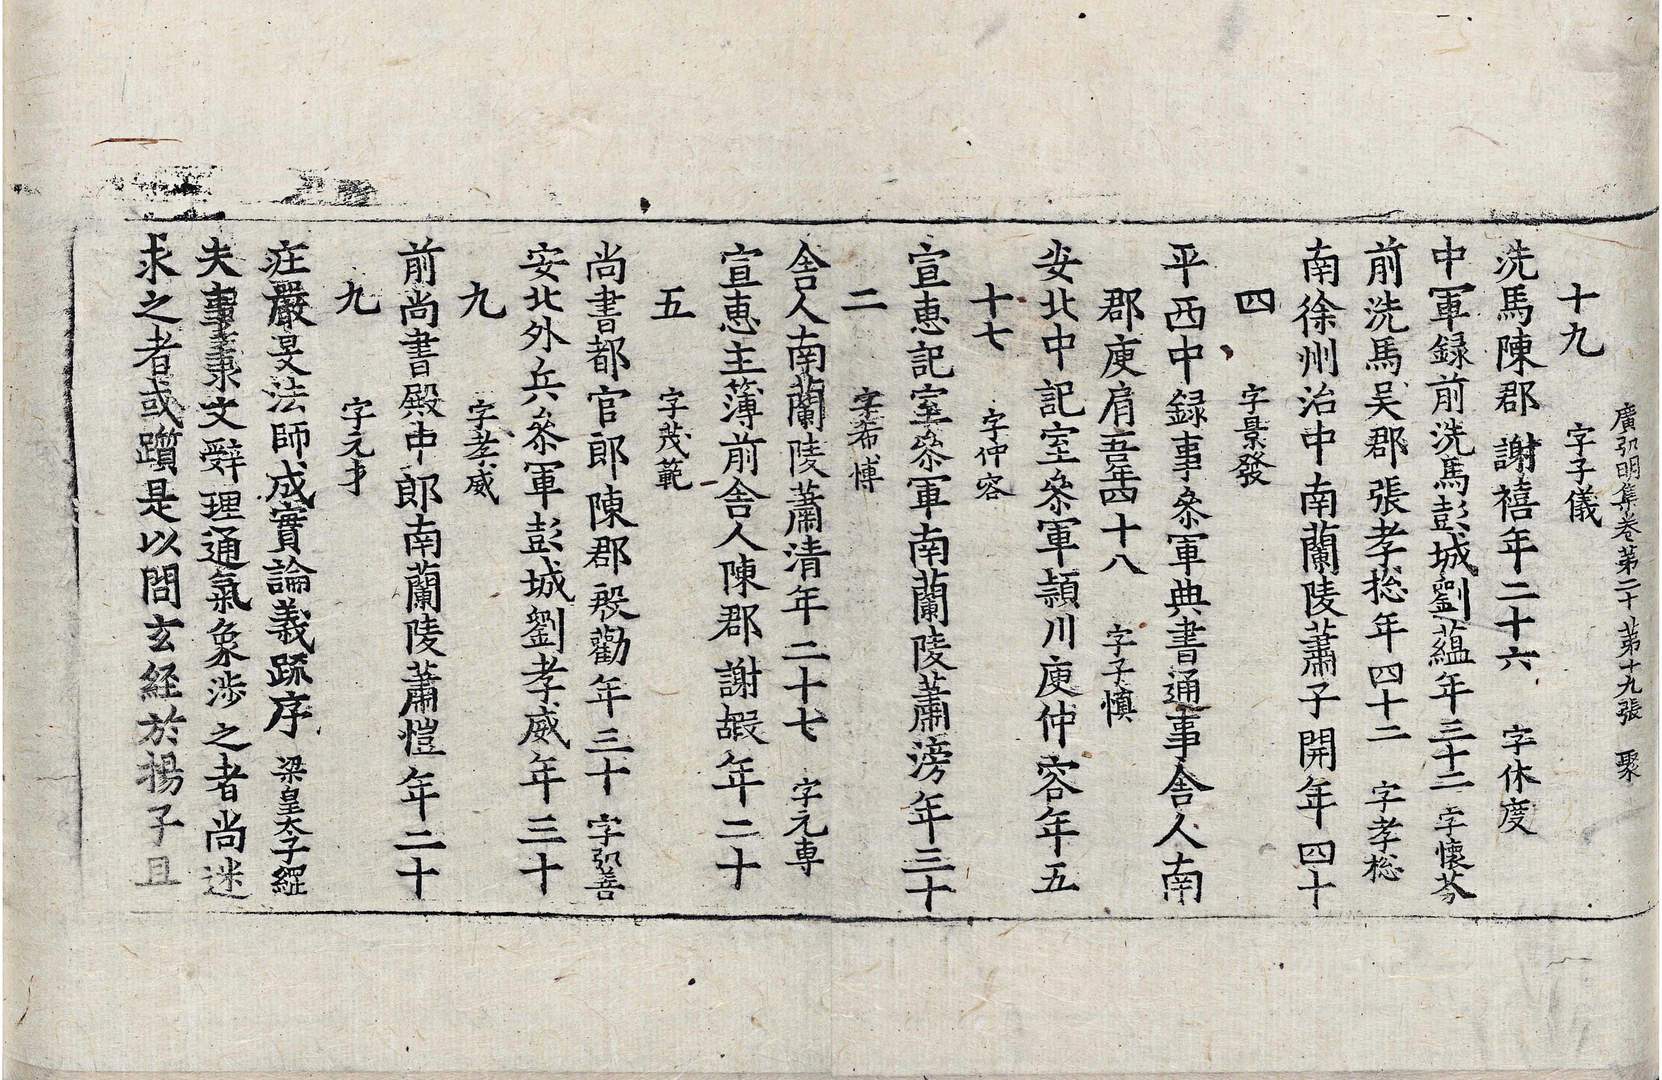 廣弘明集卷第二十 第十九張 聚
十九 字子儀
洗馬陳郡謝禧年二十六 字休度
中軍録前洗馬彭城劉蘊年三十二 字懷芬
前洗馬吳郡張孝捴年四十二 字孝捴
南徐州治中南蘭陵蕭子開年四十
四 字景發
平西中録事叅軍典書通事舍人南
郡庾肩吾年四十八 字子慎
安北中記室叅軍頴川庾仲容年五
十七 字仲容
宣惠記室叅軍南蘭陵蕭滂年三十
二 字希博
舍人南蘭陵蕭清年二十七 字元專
宣惠主簿前舍人陳郡謝嘏年二十
五 字茂範
尚書都官郎陳郡殷勸年三十 字弘善
安北外兵叅軍彭城劉孝威年三十
九 字孝威
前尚書殿中郎南蘭陵蕭愷年二十
九 字元才
莊嚴旻法師成實論義䟽序 梁皇太子綱
夫事秉文辭理通氣象涉之者尚迷
求之者或躓是以問玄経於揚子且